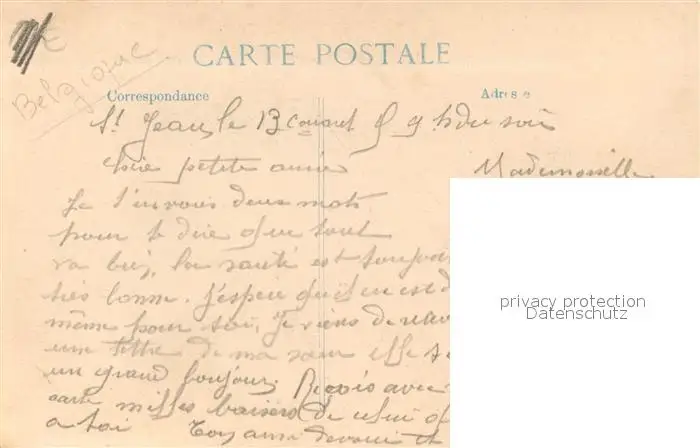 Belgique
CARTE POSTALE
Correspondance
Adresse
St Jean, le 13 courant 9 h du soir
Chère petite amie
Mademoiselle
Je t'envois deux mots
pour te dire que tout
va bien, la santé est toujours
très bonne. J'espère qu'il en est de
même pour toi, Je viens de
une lettre de ma sœur
un grand bonjour. Reçois avec
carte milles baisers de celui
a toi Ton ami
privacy protection
Datenschutz